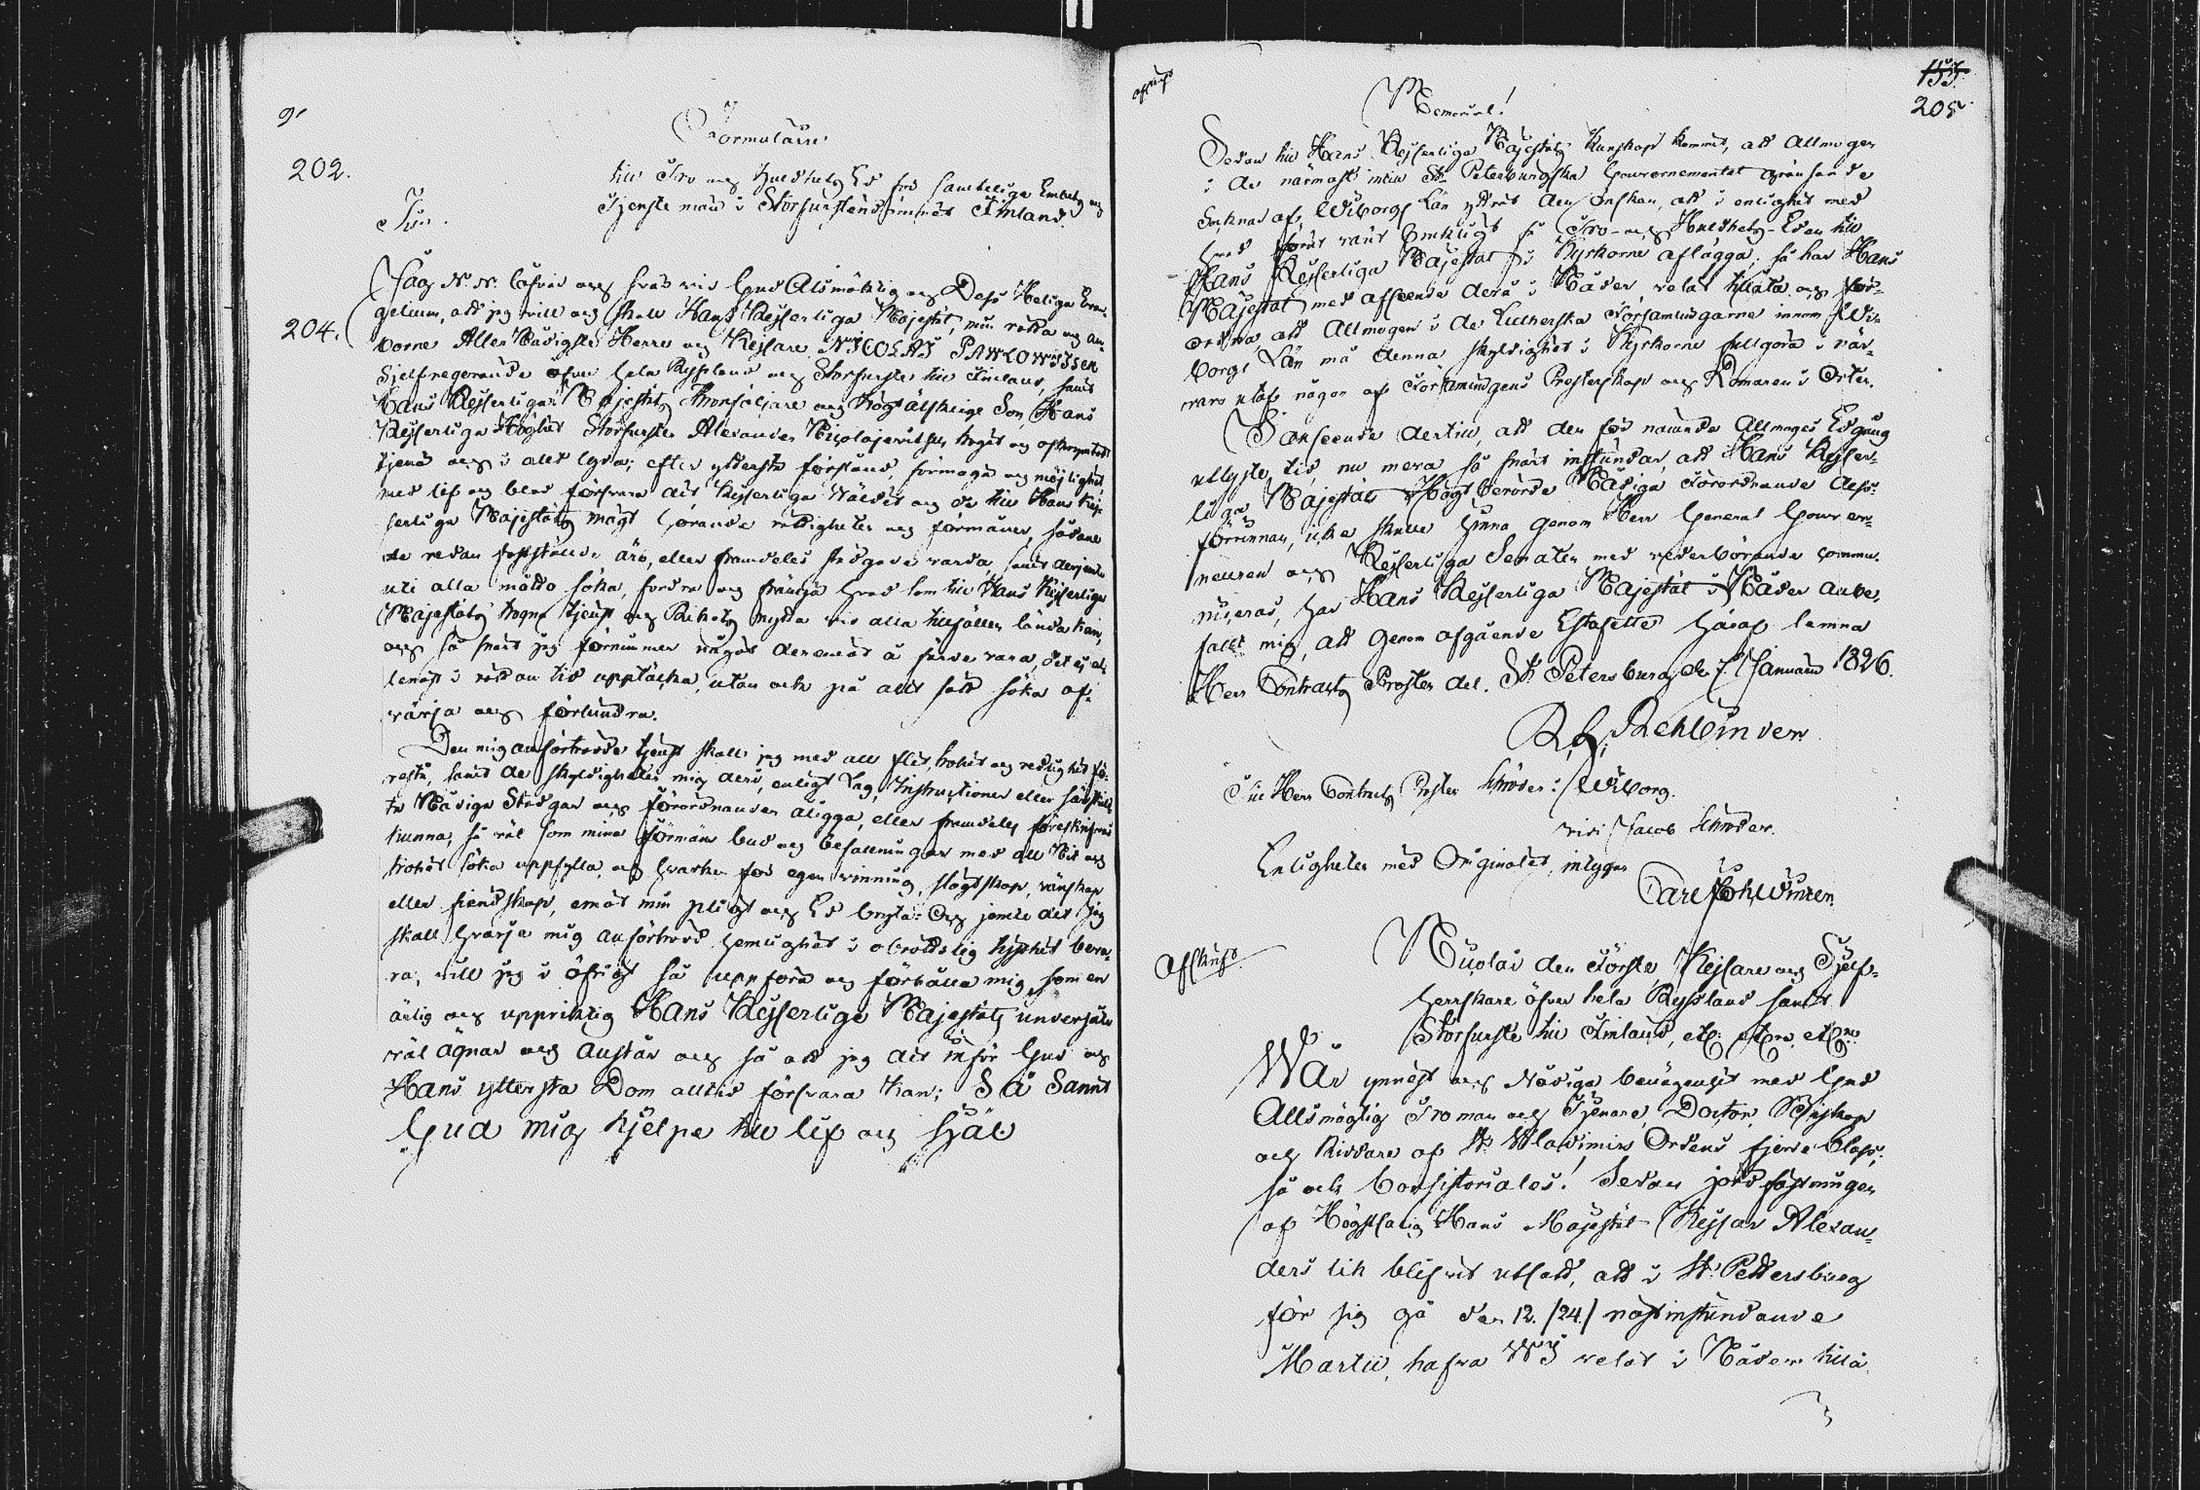 9.
Formulair
202.
till Tro och Huldhets Ed för samtelige Embets och
Tjenste män i Storfurstendömmet Finland.
Jag N. N. låfvar och svär vid Gud Alsmäktig och Dess Heliga Evan-
gelium, att jag vill och skall Hans Kejserliga Majestät, min rätta och an-
204.
borne Aller Nådigste Herre och Kejsare NICOLAI PAWLOWITSCH
Sjelfregerande öfver hela Ryssland och Storfurste till Finland, samt
Hans Kejserliga Majestäts Thronföljare och högt älskelige Son Hans
Kejserliga Höghet Storfursten Alexander Nicolajevitsch troget och
tjena och i allt lyda; efter yttersta förstånd, förmåga och möjlighet
med lif och blod försvara det Kejserliga Väldet och de till Hans Kej-
serliga Majestäts magt hörande rättigheter och förmåner, sådane
de redan fastställde äro, eller framdeles stadgade varda, samt
uti alla måtto söka, fordra och främja hvad som till Hans Kejserliga
Majestäts trogna tjenst och Rikets nytta vid alla tillfällen lända kan;
och så snart jag förnimmer något deremot å färde vara, det ej al-
lenast i rättan tid upptäcka, utan ock på allt sätt söka af-
värja och förhindra.
Den mig anförtrodde tjenst skall jag med all flit, trohet och redlighet fö-
restå, samt de skyldigheter mig deri, enligt Lag, Instructioner eller särskil-
te Nådiga Stadgar och Förordnanden åligga, eller framdeles föreskrifvas
kunna, så väl som mina Förmäns bud och befallningar med all nit och
trohet söka uppfylla, och hvarken för egen vinning, slägtskap, vänskap
eller fiendskap, emot min pligt och Ed bryta: Och jemte det jag
skall hvarje mig anförtrodd hemlighet i obrottslig tysthet beva-
ra, vill jag i öfrigt så uppföra och förhålla mig, som en
ärlig och uppriktig Hans Kejserliga Majestäts undersåte
väl ägnar och anstår och så att jag det inför Gud och
Hans yttersta Dom alltid försvara kan; Så Sannt
Gud mig hjelpe till lif och Själ.
Afskrift
155.
205
Memorial!
Sedan till Hans Kejserliga Majestäts kunskap kommit, att Allmogen
i de närmast intill St. Petersburgska Gouvernementet gränsande
Socknar af Wiborgs Län yttrat den önskan, att i enlighet med
hvad förut varit brukligt få Tro- och Huldhets-Eden till
Hans Kejserliga Majestät i Kyrkorne aflägga; så har Hans
Majestät med afseende derå i Nåder velat tillåta och för-
ordna att Allmogen i de Lutherska Församlingarne innom Wi-
borgs Län må denna skyldighet i Kyrkorne fullgöra i när-
varo utaf någon af Församlingens Presterskap och Domaren i Orten.
I anseende dertill, att den för nämnde Allmoges Edgång
utlyste tid nu mera så snart instundar, att Hans Kejser-
liga Majestäts Högstberörde Nådiga Förordnande dess-
förinnan, icke skulle hinna genom Herr General Gouver-
neuren och Kejserliga Senaten med vederbörande commu-
niceras, har Hans Kejserliga Majestät i Nåder anbe-
fallt mig, att genom afgående Estafette häraf lemna
Herr Contracts Prosten del. St Petersburg de 7 Januarii 1826.
R. H. Rehbinder
Till Herr Contracts Prosten Schröder i Wiborg.
vidi Jacob Schröder.
Enligheten med Originalet, intygar
Carl Joh. Winter.
Afskrift.
Nicolai den Förste, Kejsare och Sjelf-
herrskare öfver hela Ryssland samt
Storfurste till Finland, etc. etc. etc.
Wår ynnest och Nådiga bevågenhet med Gud
Allsmägtig Tro man och Tjenare, Doctor, Biskop
och Riddare af St. Wladimirs Ordens fjerde Class,
så ock Consistoriales! Sedan jordfästningen
af Högstsalig Hans Majestät Kejsar Alexan-
ders lik blifvit utsatt, att i St. Pettersburg
för sig gå den 12./24./ nästinstundande
Martii, hafva WI velat i Nåder tillå